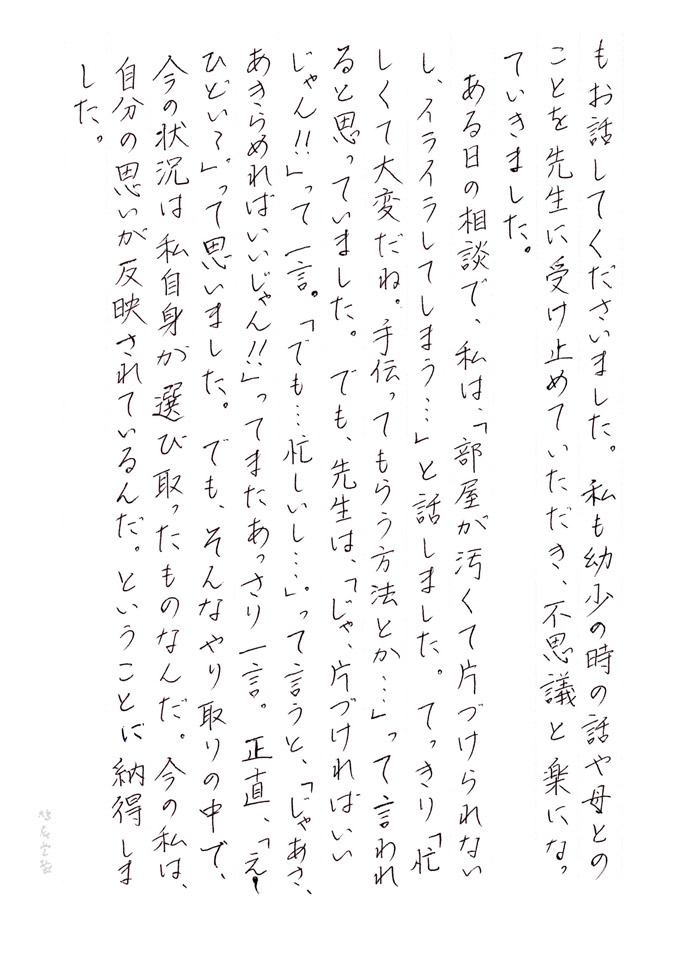 もお話してくださいました。私も幼少の時の話や母との
ことを先生に受け止めていただき、不思議と楽になっ
ていきました。
ある日の相談で、私は、「部屋が汚くて片づけられない
し、イライラしてしまう…」と話しました。てっきり「忙
しくて大変だね。手伝ってもらう方法とか…」って言われ
ると思っていました。でも、先生は、「じゃ、片づければいい
じゃん!!」って一言。「でも…忙しいし…」。って言うと、「じゃあさ、
あきらめればいいじゃん!!」ってまたあっさり一言。正直、「えー
ひどい〜」。って思いました。でも、そんなやり取りの中で、
今の状況は私自身が選び取ったものなんだ。今の私は、
自分の思いが反映されているんだ。ということに納得しま
した。